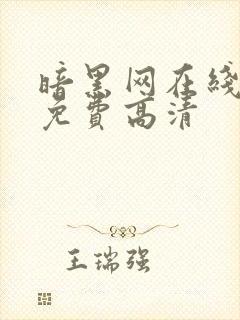 暗黑网在线
免費高清
王瑞强